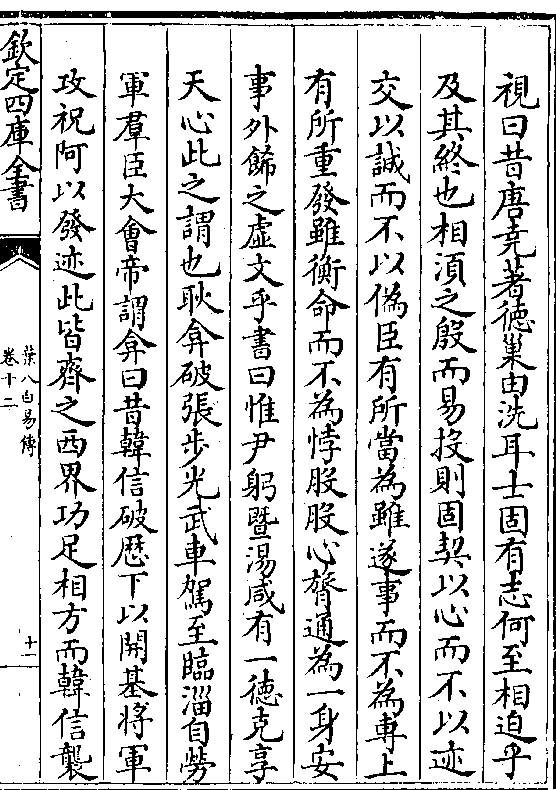 視曰昔唐堯著徳巢由洗耳士固有志何至相迫乎
及其終也相湏之殷而易投則固契以心而不以迹
交以誠而不以偽臣有所當為雖遂事而不為専上
有所重發雖衡命而不為悖股肱心膂通為一身安
事外餙之虛文乎書曰惟尹躬暨湯咸有一徳克享
天心此之謂也耿弇破張步光武車駕至臨淄自勞
軍羣臣大會帝謂弇曰昔韓信破歴下以開基將軍
攻祝阿以發迹此皆齊之西界功足相方而韓信襲
欽定四庫全書
葉八白易傳
卷十二
十一